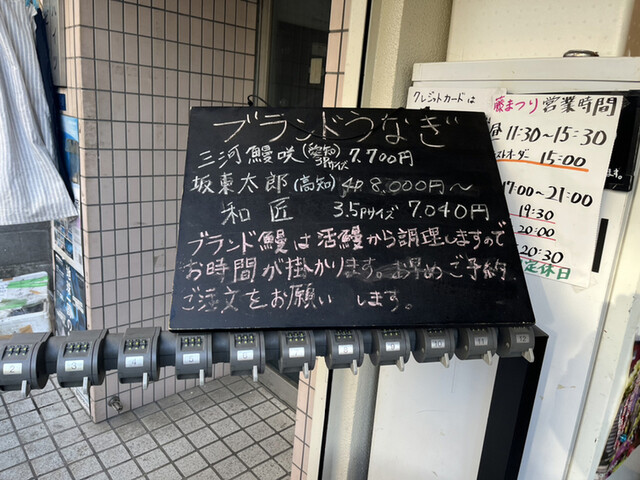 ブランドうなぎ
三河鰻咲(愛知)3Pサイズ 7.700円
坂東太郎(高知)4P 8.000円〜
和匠 3.5Pサイズ 7.040円
ブランド鰻は活鰻から調理しますので
お時間が掛かります。お早めご予約
ご注文をお願いします。
クレジットカードは
藤まつり営業時間
昼11:30〜15:30
ストオーダー 15:00
17:00〜21:00
19:30
20:00
20:30
定休日
2
3
4
5
6
7
8
9
10
11
12